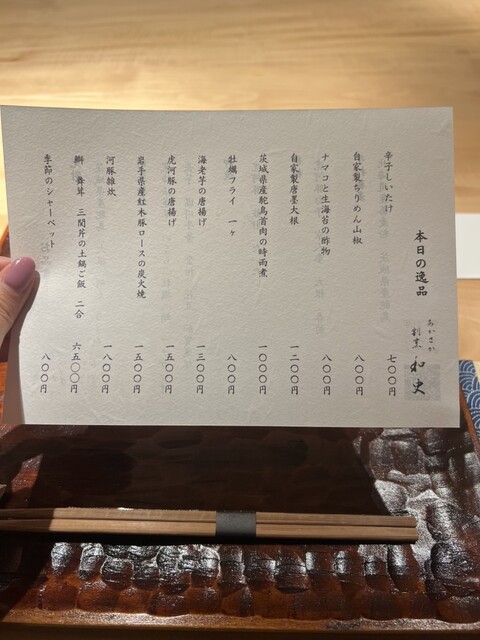 本日の逸品
あかさか
割烹 和史
辛子しいたけ 七〇〇円
自家製ちりめん山椒 八〇〇円
ナマコと生海苔の酢物 八〇〇円
自家製唐墨大根 一二〇〇円
茨城県産駝鳥首肉の時雨煮 一〇〇〇円
牡蠣フライ 一ヶ 八〇〇円
海老芋の唐揚げ 一三〇〇円
虎河豚の唐揚げ 一五〇〇円
岩手県産紅木豚ロースの炭火焼 一五〇〇円
河豚雑炊 一八〇〇円
鰤 舞茸 三関芹の土鍋ご飯 二合 六五〇〇円
季節のシャーベット 八〇〇円